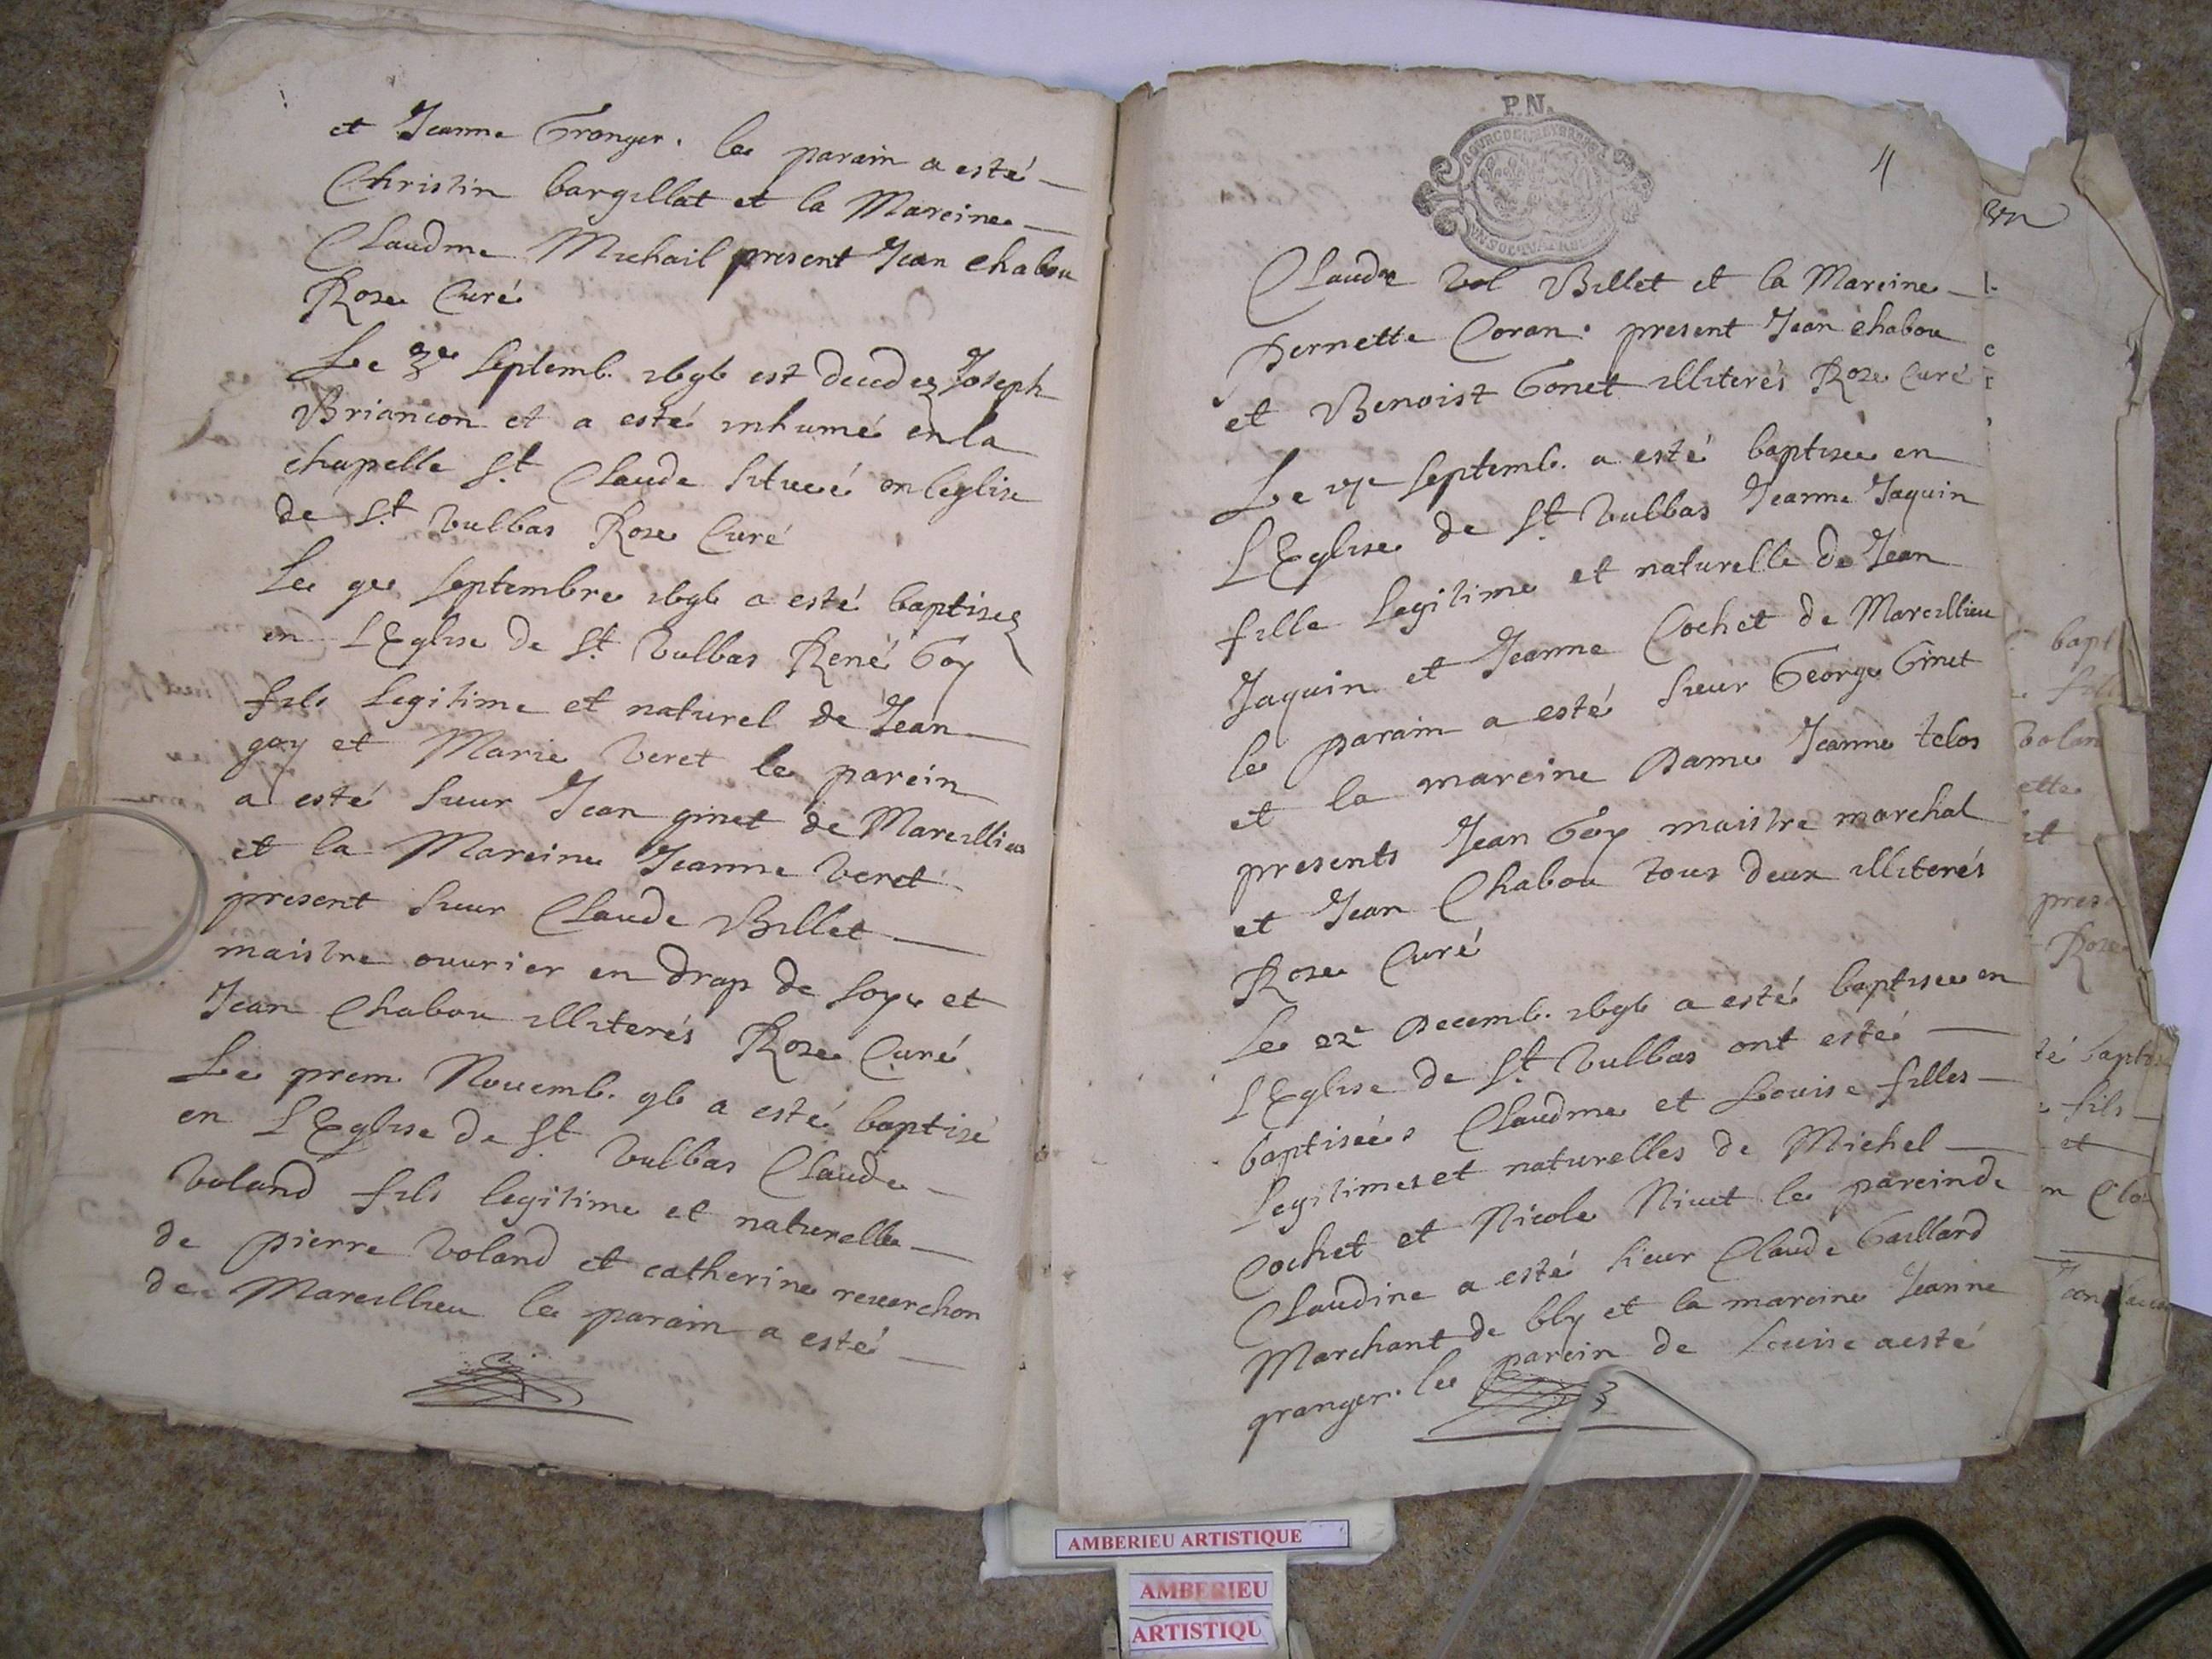 et Jeanne Granger. le parain a esté
Christin bargillat et la Mareine
Claudine Michail present Jean chabou
Roze Curé
Le 3e septemb. 1696 est decedez Joseph
Briancon et a esté inhumé en la
chapelle St Claude situeé en leglise
de St Vulbas Roze Curé
Le 9e septembre 1696 a esté baptisez
en L'Eglise de St Vulbas René Goy
fils legitime et naturel de Jean
goy et Marie Veret le parein
a esté sieur Jean ginet de Marcillieu
et la Mareine Jeanne Veret
present sieur Claude Billet
maistre ouurier en drap de soye et
Jean Chabou illiterés Roze Curé
Le prem. Nouemb. 96 a esté baptisé
en L'Eglise de St Vulbas Claude
Voland fils legitime et naturelle
de pierre Voland et catherine reuerchon
de Marcillieu le parain a esté
P.N.
4
Claude Billet et la Mareine
Pernette Coran. present Jean chabou
et Benoist Gonet illiterés Roze Curé
Le septemb. a esté baptisee en
L'Eglise de St Vulbas Jeanne Jaquin
fille legitime et naturelle de Jean
Jaquin et Jeanne Cochet de Marcillieu
le parain a esté sieur George Ginet
et la mareine Dame Jeanne telos
presents Jean Goy maistre marchal
et Jean Chabou tous deux illiterés
Roze Curé
Le 22e Decemb. 1696 a esté baptisee en
L'Eglise de St Vulbas ont esté
baptiseés Claudine et Louise filles
legitimes et naturelles de Michel
Cochet et Nicole Niuet le parein de
Claudine a esté sieur Claude Gaillard
Marchant de bly et la mareine Jeanne
granger. le parein de Louise a esté
bapt
ette
et
pres
Roze
té bapt
fils
et
AMBERIEU ARTISTIQUE
AMBERIEU
ARTISTIQU